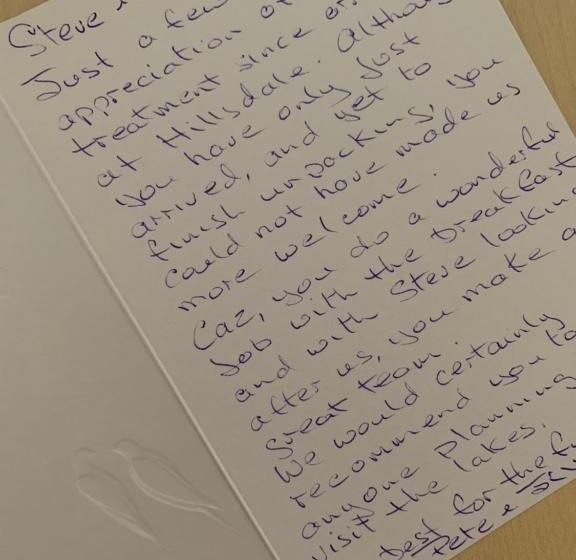 Steve
Just a few
appreciation of
treatment since
at Hillsdale. Although
you have only Just
arrived, and yet to
finish unpacking, you
could not have made us
more welcome.
Caz, you do a wonderful
Job with the breakfast
and with Steve looking
after us, you make a
great team.
We would certainly
recommend you to
anyone planning
visit the lakes.
best for the
Pete &